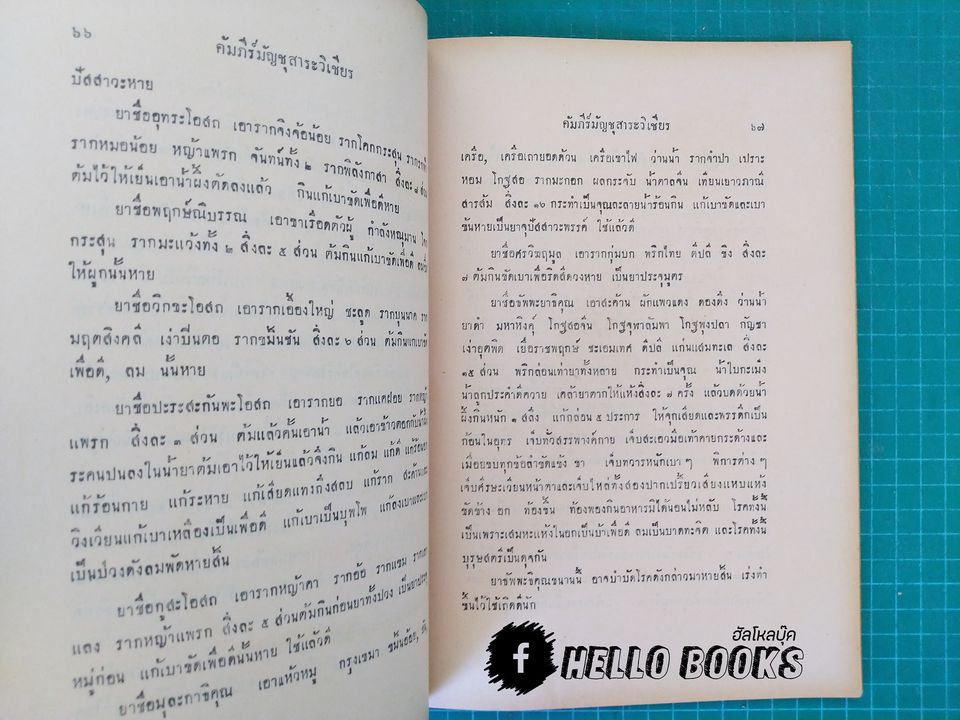 ๖๖
คัมภีร์มัญชุสาระวิเชียร
ปัสสาวะหาย
ยาชื่ออุทระโอสถ เอารากจิงจ้อน้อย รากโคกกระสุน
รากหมอน้อย หญ้าแพรก จันทน์ทั้ง ๒ รากพิลังกาสา สิ่งละ ๗ ส่วน
ต้มไว้ให้เย็นเอาน้ำผึ้งตัดลงแล้ว กินแก้เบาขัดเพื่อดีหาย
ยาชื่อพฤกษ์ณีบรรณ เอาชาเรือดตัวผู้ กำลังหณุมาน
กระสุน รากมะแว้งทั้ง ๒ สิ่งละ ๕ ส่วน ต้มกินแก้เบาขัดเพื่อดี
ให้ผูกนั้นหาย
ยาชื่อวิกขะโอสถ เอารากเอื้องใหญ่ ชะลูด รากบุนนาค
มฤตสิงคลี เง่าบี่นตอ รากขมิ้นชัน สิ่งละ ๖ ส่วน ต้มกินแก้เบาขัด
เพื่อดี, ลม นั้นหาย
ยาชื่อปะระสะกันพะโอสถ เอารากยอ รากแคฝอย
แพรก สิ่งละ ๓ ส่วน ต้มแล้วคั้นเอาน้ำ แล้วเอาข้าวตอกกับน้ำ
ระคนปนลงในน้ำยาต้มเอาไว้ให้เย็นแล้วจึงกิน แก้ลม แก้ดี
แก้ร้อนกาย แก้ระหาย แก้เสียดแทงถึงสลบ แก้ราก
วิงเวียนแก้เบาเหลืองเป็นเพื่อดี แก้เบาเป็นบุพโพ
เป็นป่วงดังลมพัดหายสิ้น
ยาชื่อกูสะโอสถ เอารากหญ้าคา รากอ้อ รากแขม
แลง รากหญ้าแพรก สิ่งละ ๕ ส่วนต้มกินก่อนยาทั้งปวง
หมู่ก่อน แก้เบาขัดเพื่อดีนั้นหาย ใช้แล้วดี
ยาชื่อมุละกาธิคุณ เอาแห้วหมู กรุงเขมา ขมิ้นอ้อย,
คัมภีร์มัญชุสาระวิเชียร ๖๗
เครือ, เครือเถายอดด้วน เครือเขาไฟ ว่านน้ำ รากจำปา เปราะ
หอม โกฐสอ รากมะกอก ผลกระจับ น้ำตาลจีน เทียนเยาวภาณี
สารส้ม สิ่งละ ๑๖ กระทำเป็นจุณละลายน้ำร้อนกิน แก้เบาขัดและเบา
ขันหายเป็นยาจุปัสสาวะพรรค์ ใช้แล้วดี
ยาชื่อศรวิฆฤมูล เอารากกุ่มบก พริกไทย ดีปลี ขิง สิ่งละ
๗ ต้มกินขัดเบาเพื่อริดสีดวงหาย เป็นยาประจุมูตร
ยาชื่อขัพพะยาธิคุณ เอาสะค้าน ผักแพวแดง ดองดึง ว่านน้ำ
ยาดำ มหาหิงคุ์ โกฐสอจีน โกฐจุฬาลัมพา โกฐพุงปลา กัญชา
เง่าอุตพิด เยื่อราชพฤกษ์ ชะเอมเทศ ดีปลี แก่นแสมทะเล สิ่งละ
๑๕ ส่วน พริกล่อนเท่ายาทั้งหลาย กระทำเป็นจุณ น้ำใบกะเม็ง
น้ำลูกประคำดีควาย เคล้ายาตากให้แห้งสิ่งละ ๗ ครั้ง แล้วบดด้วยน้ำ
ผึ้งกินหนัก ๑ สลึง แก้กล่อน ๕ ประการ ให้จุกเสียดและพรรดึกเป็น
ก้อนในอุทร เจ็บทั่วสรรพางค์กาย เจ็บสะเอวมือเท้าตายกระด้างและ
เมื่อยขบทุกข้อลำขัดแข้ง ขา เจ็บทวารหนักเบา ๆ พิการต่าง ๆ
เจ็บศีรษะเวียนหน้าตาและเจ็บไหล่ทั้งสองปากเปรี้ยวเสียงแหบแห้ง
ขัดข้าง อก ท้องขึ้น ท้องพองกินอาหารมิได้นอนไม่หลับ โรคทั้งนี้
เป็นเพราะเสมหะแห้งในอกเป็นบ้าเพื่อดี ลมเป็นบาดทะจิต และโรคทั้งนี้
บุรุษสตรีเป็นดุจกัน
ยาขัพพะธิคุณขนานนี้ อาจบำบัดโรคดังกล่าวมาหายสิ้น เร่งทำ
ขึ้นไว้ใช้เถิดดีนัก
ฮัลโหลบุ๊ค
f HELLO BOOKS